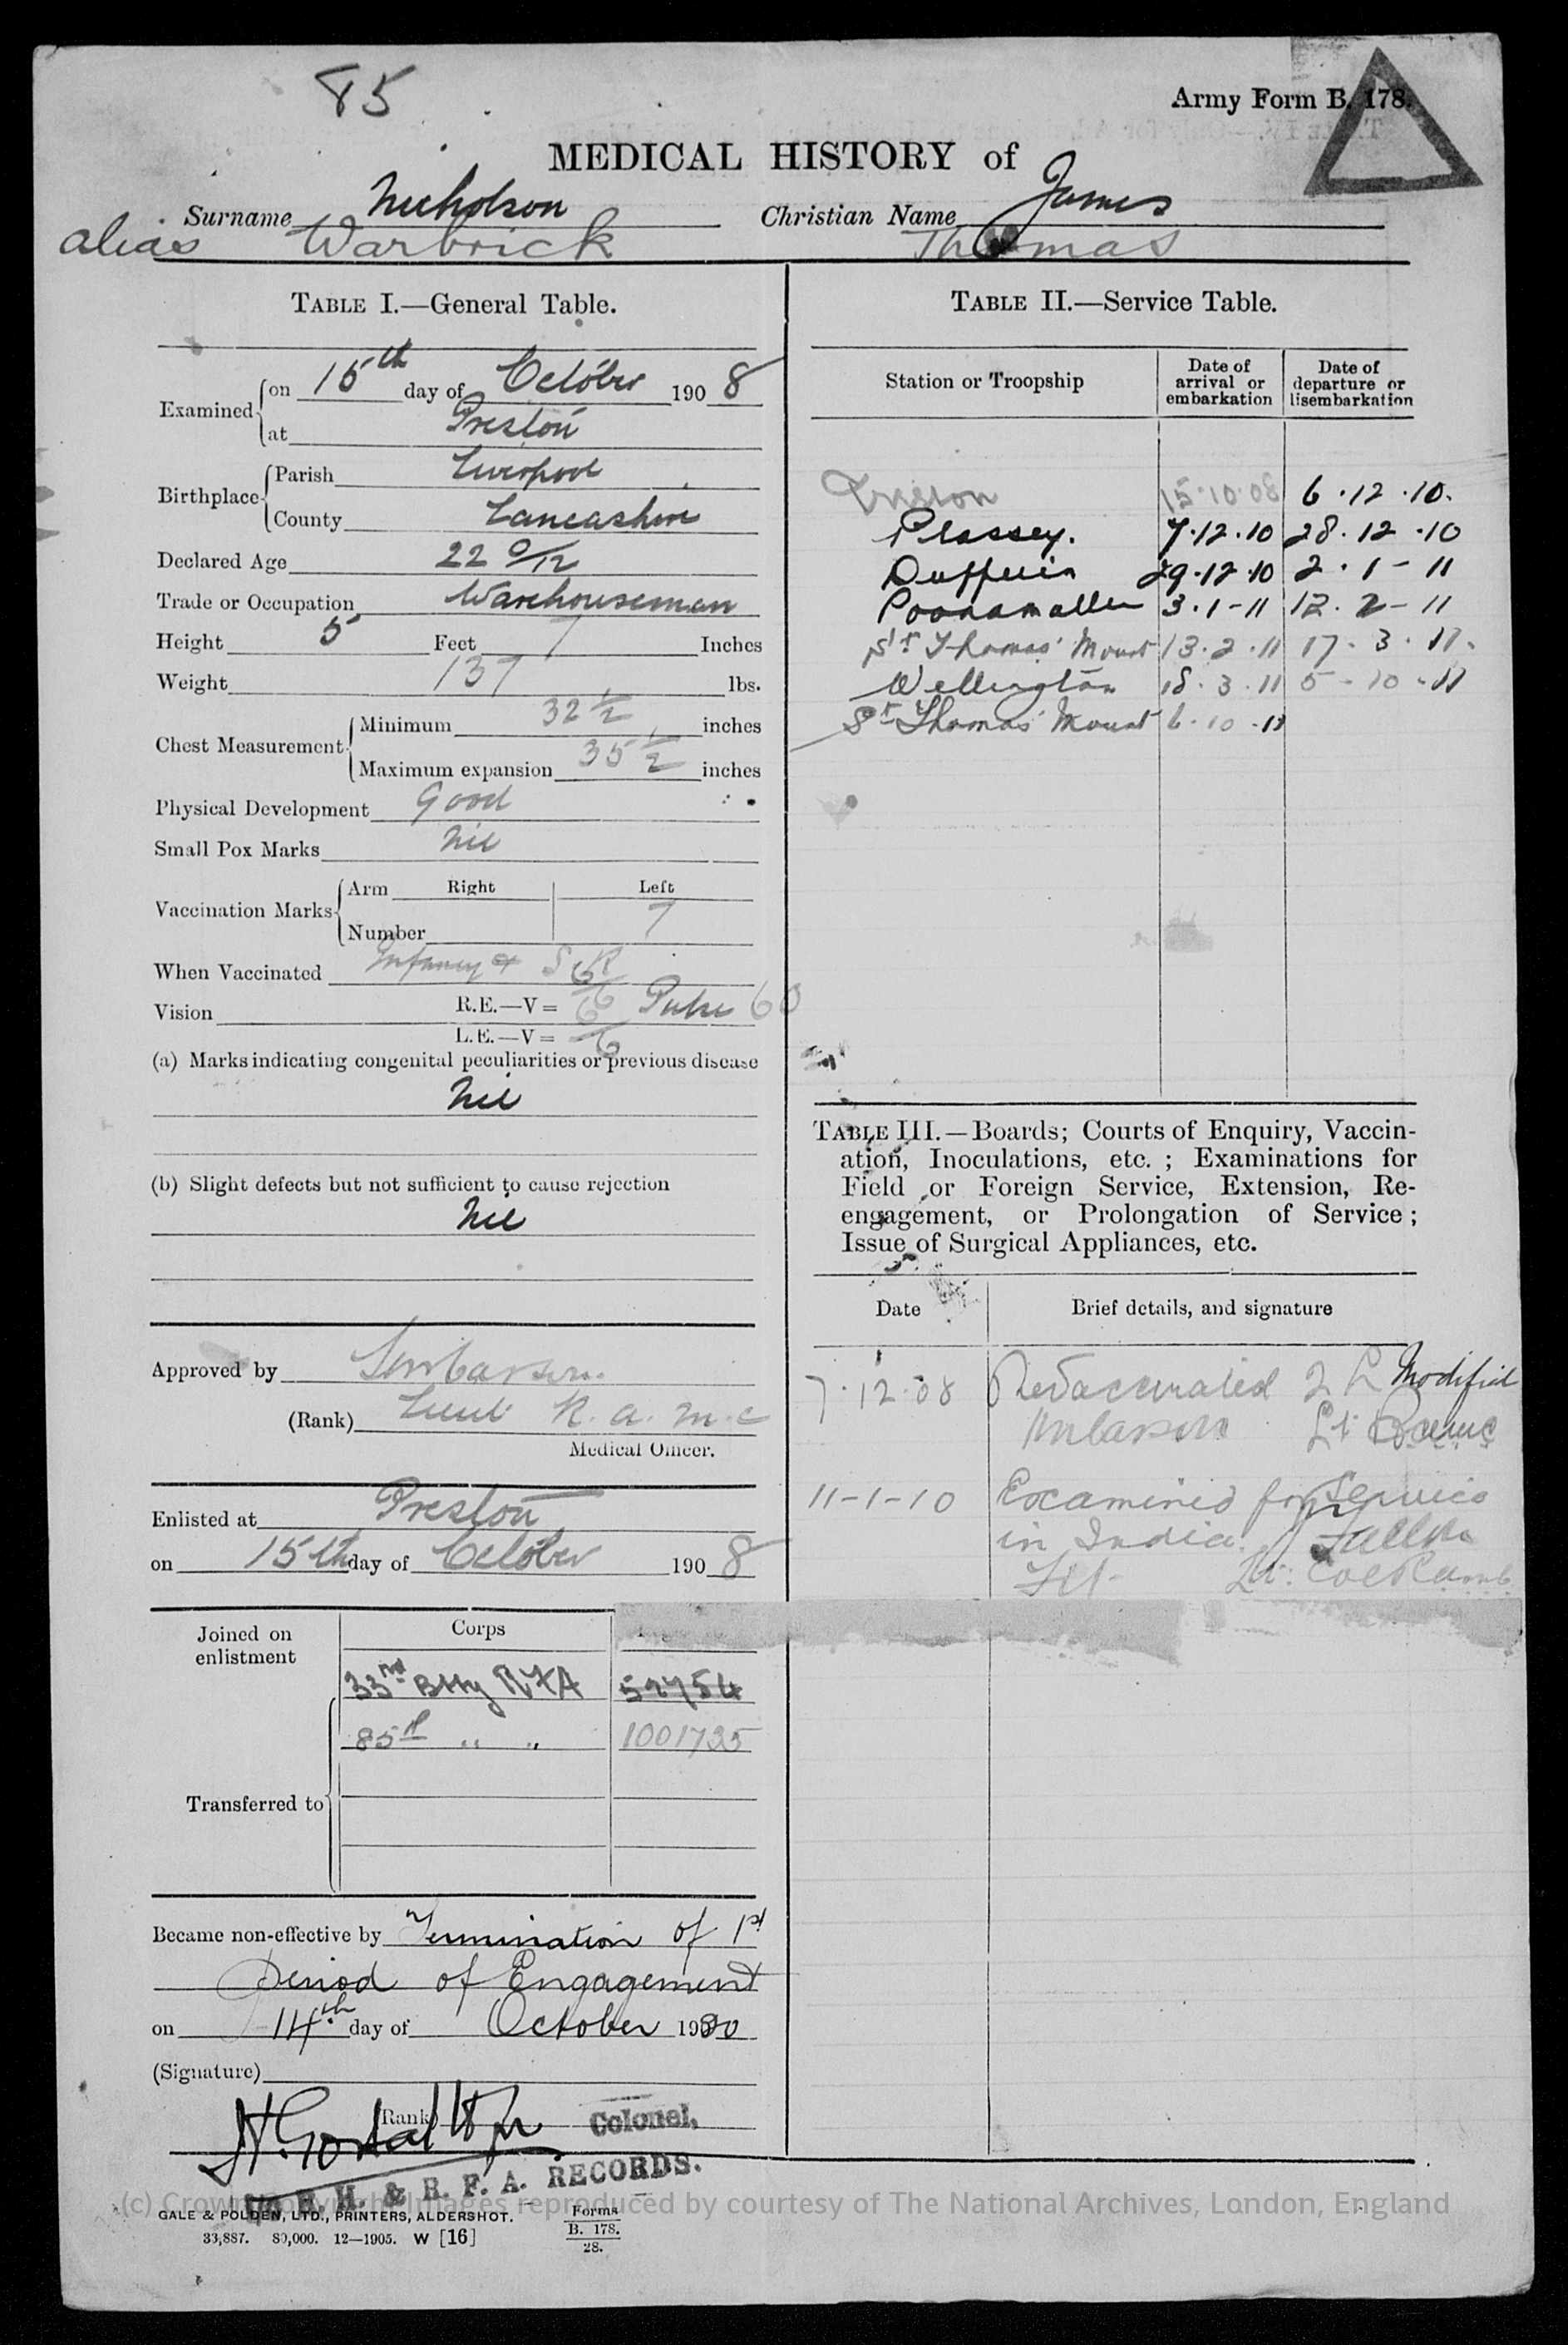 85
Army Form B. 178.
MEDICAL HISTORY of
Surname Nicholson Christian Name James
alias Warbrick Thomas
TABLE I.—General Table.
Examined on 15th day of October 1908
at Preston
Birthplace Parish Liverpool
County Lancashire
Declared Age 22 0/12
Trade or Occupation Warehouseman
Height 5 Feet 7 Inches
Weight 137 lbs.
Chest Measurement Minimum 32 1/2 inches
Maximum expansion 35 1/2 inches
Physical Development Good
Small Pox Marks Nil
Vaccination Marks Arm Right Left
Number 7
When Vaccinated Infancy &
Vision R.E.—V= 6/6 Pulse 60
L.E.—V= 6/6
(a) Marks indicating congenital peculiarities or previous disease
Nil
(b) Slight defects but not sufficient to cause rejection
Nil
Approved by
(Rank) Lieut R.A.M.C
Medical Officer.
Enlisted at Preston
on 15th day of October 1908
Joined on enlistment
Corps
33rd Btty RFA 52754
85th " " 1001735
Transferred to
Became non-effective by Termination of 1st
period of Engagement
on 14th day of October 1920
(Signature)
Rank Colonel,
R. H. & R. F. A. RECORDS.
GALE & POLDEN, LTD., PRINTERS, ALDERSHOT.
33,887. 80,000. 12—1905. W [16]
Forms
B. 178.
28.
TABLE II.—Service Table.
Station or Troopship
Date of arrival or embarkation
Date of departure or disembarkation
Preston 15.10.08 6.12.10.
Plassey. 7.12.10 28.12.10
Dufferin 29.12.10 2.1-11
Poonamallee 3.1-11 12.2-11
St Thomas' Mount 13.2.11 17.3.11.
Wellington 18.3.11 5-10-11
St Thomas' Mount 6.10.11
TABLE III.—Boards; Courts of Enquiry, Vaccin-
ation, Inoculations, etc. ; Examinations for
Field or Foreign Service, Extension, Re-
engagement, or Prolongation of Service ;
Issue of Surgical Appliances, etc.
Date Brief details, and signature
7.12.08 Revaccinated 2 L Modified
Lt
11-1-10 Examined for Service
in India.
Fit Lt. Col
(c) Crown Copyright Images reproduced by courtesy of The National Archives, London, England